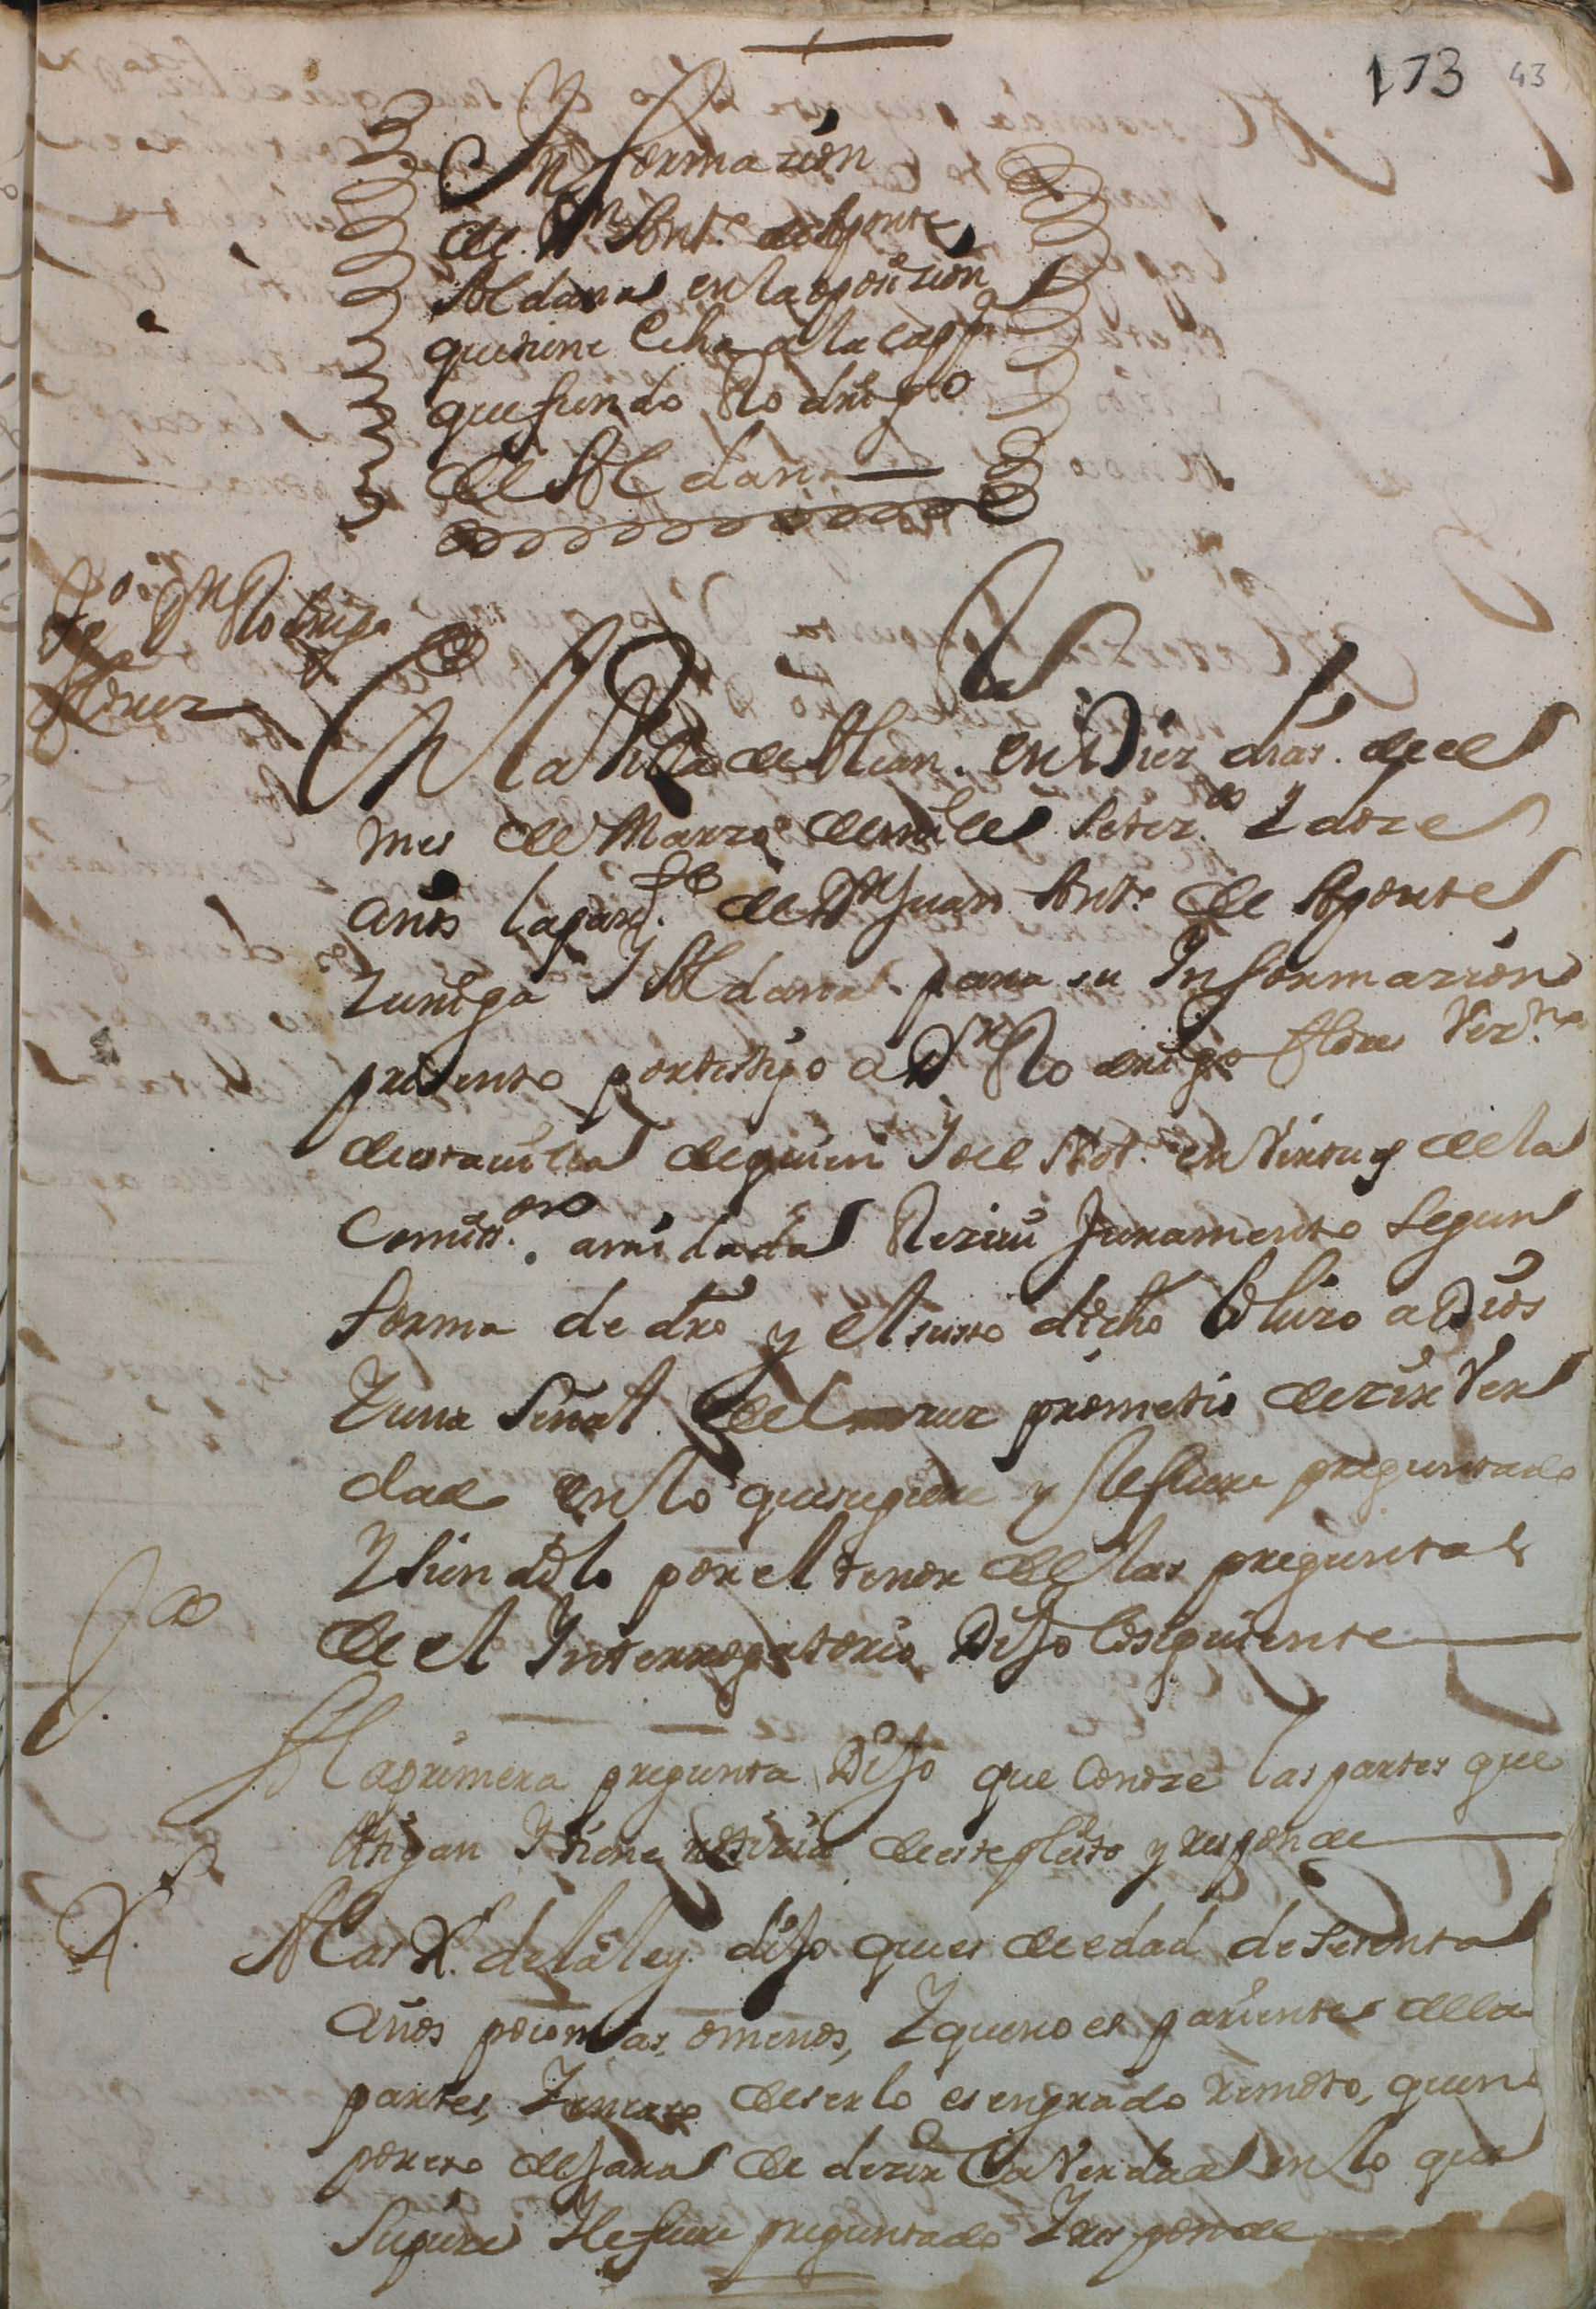 173 43
Informazion
de Dn Antt.o de Aponte
Aldana en la oposizion
que tiene echa a la capp.a
que fundo Rodrigo
de Aldana
t.o Dn Rodrigo
flores
En la Villa de en Diez dias de el
mes de Marzo de mil setez.os Y doze
años la parte de Dn Juan Antt.o de Aponte
Zuñiga Y Aldana para su Informazion
presento por testigo a Dn Rodrigo flores Vez.no
de esta villa de quien Yo el Nott.o en Virtud de la
Comiss.on a mi dada Rezivi Juramento segun
forma de dro y el susso dicho lo hizo a Dios
Y una señal de Cruz prometio dezir Ver
dad en lo que supiere y le fuere preguntado
Y siendolo por el tenor de las preguntas
de el Interrogatorio Dijo lo siguiente
A la primera pregunta Dijo que Conoze las partes que
litigan Y tiene notizia de este pleito y responde
A las de la ley dijo que es de edad de sesenta
años poco mas o menos, Y que no es pariente de la
partes, Y en caso de serlo es en grado remoto, que ni
por eso dejara de dezir la Verdad en lo que
supiere Y le fuere preguntado Y responde